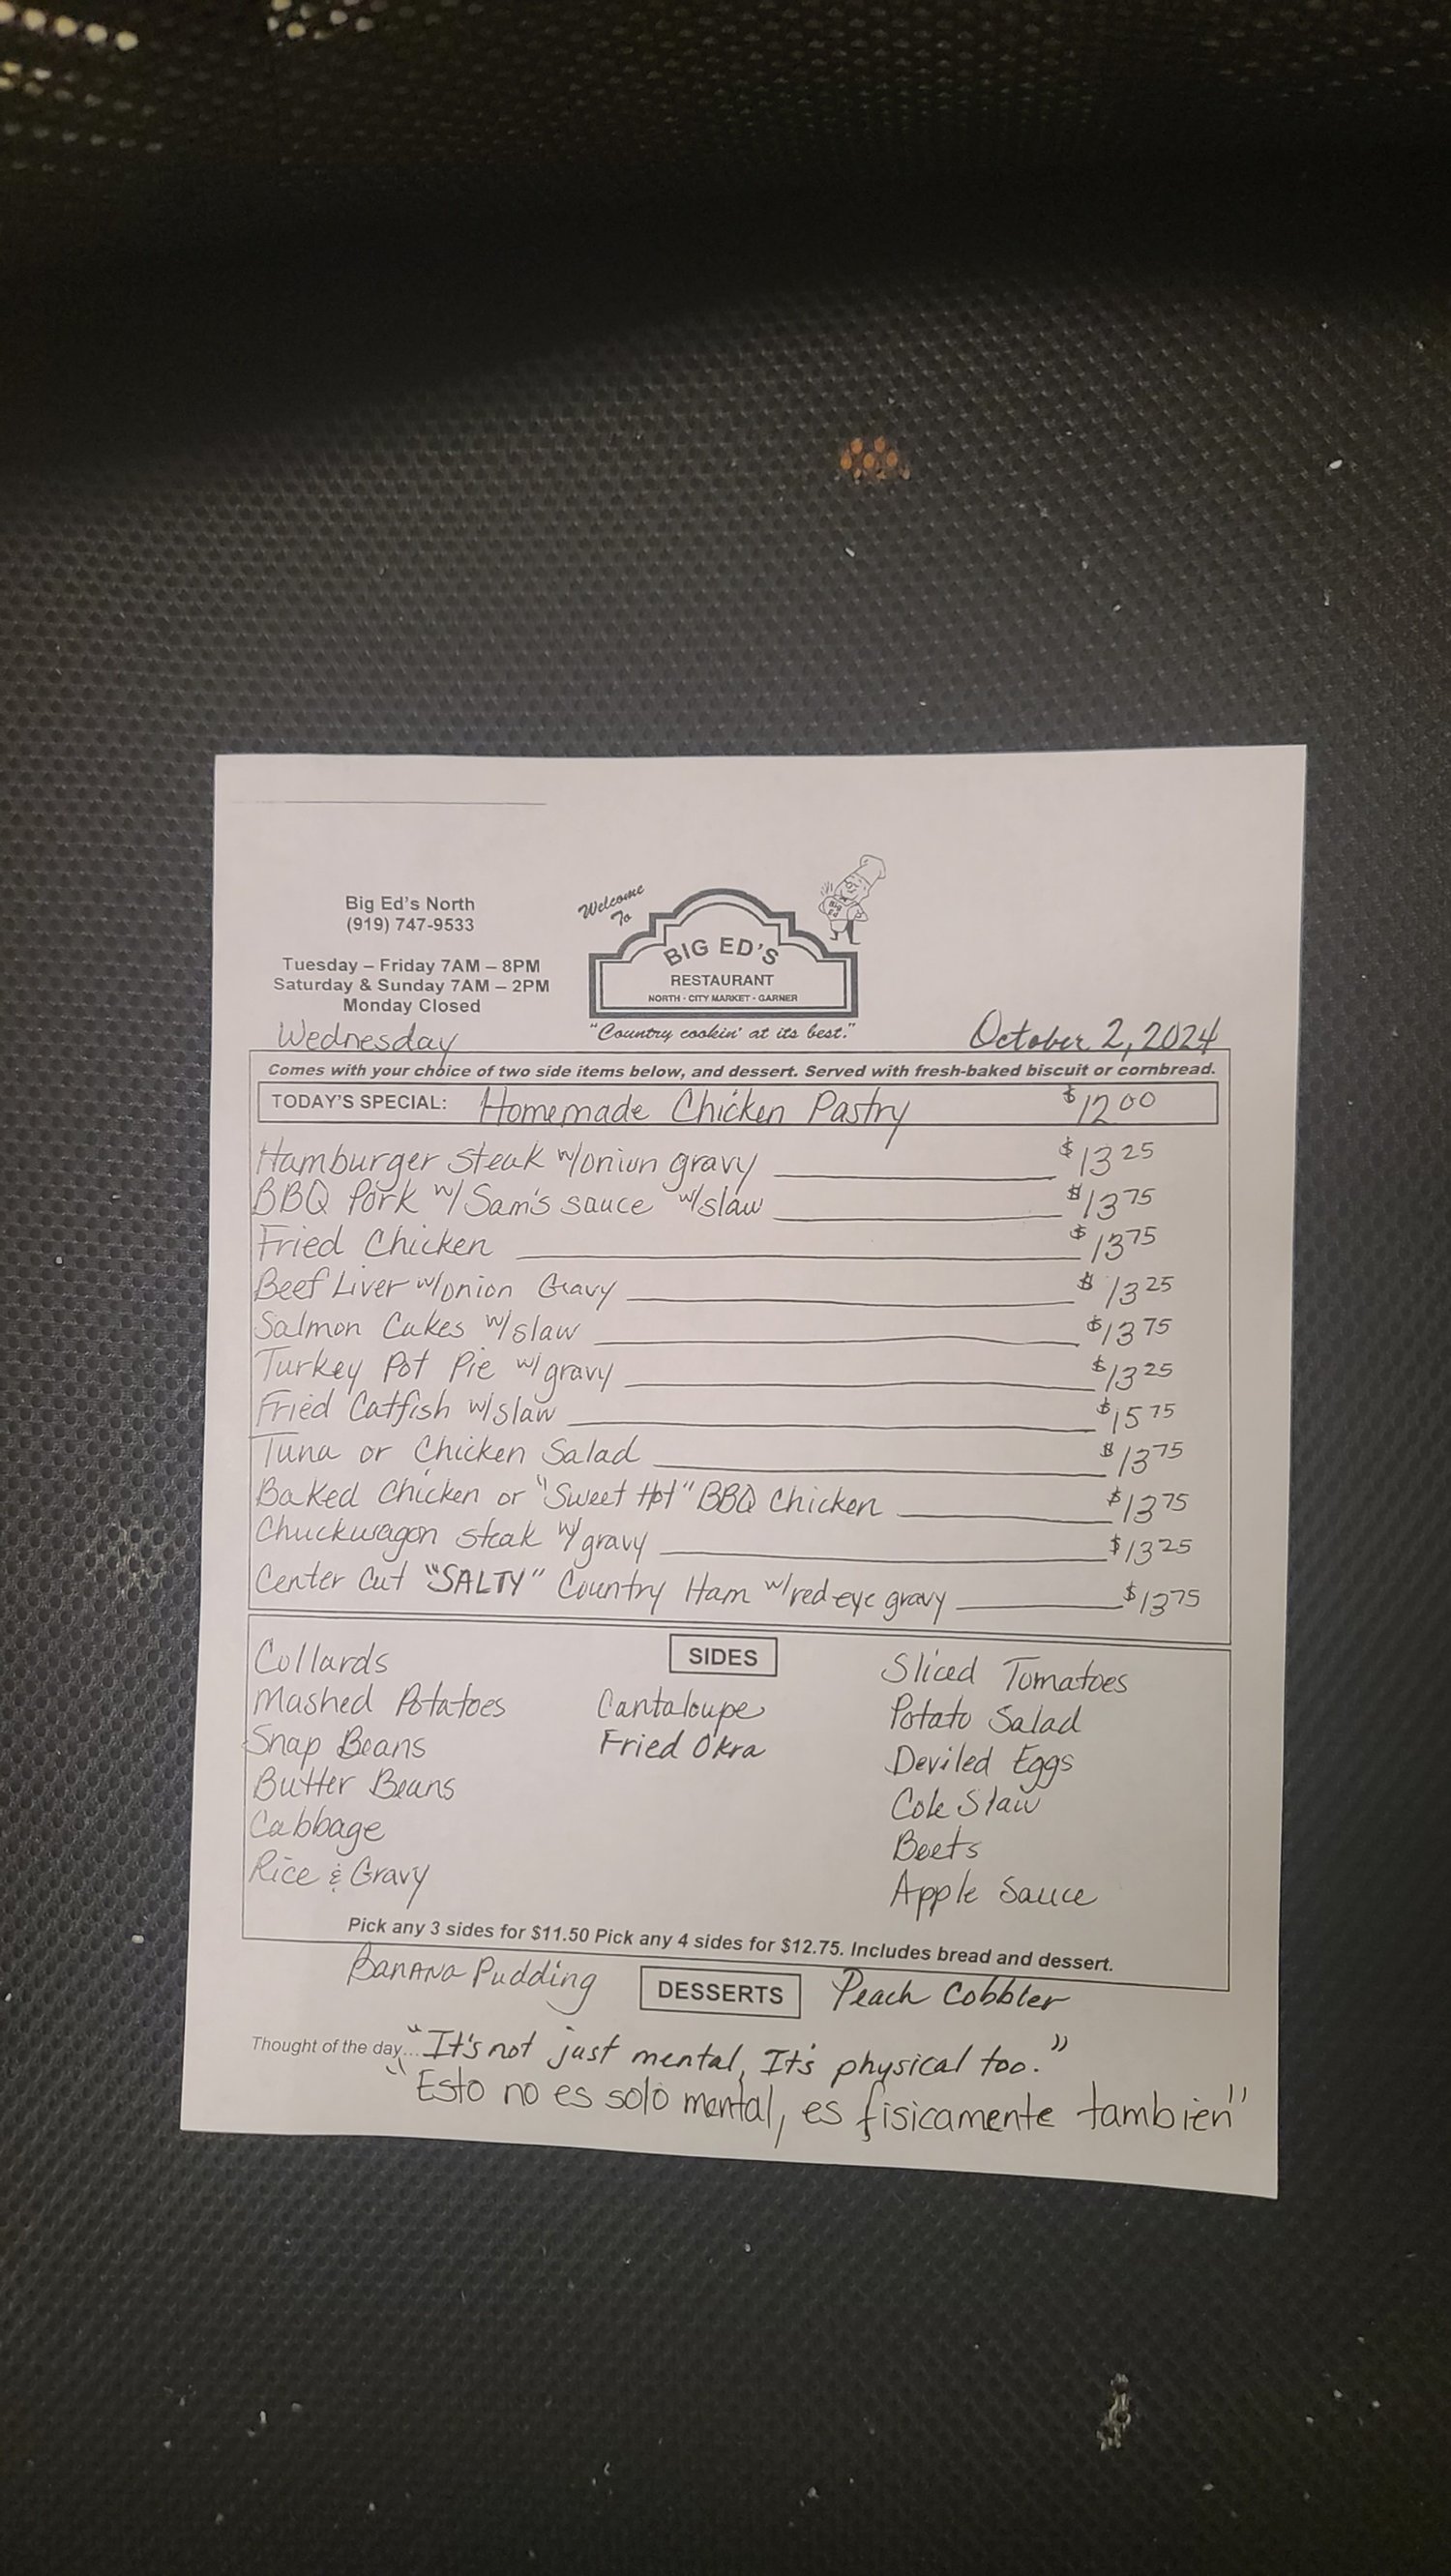 Big Ed's North
(919) 747-9533
Tuesday – Friday 7AM – 8PM
Saturday & Sunday 7AM – 2PM
Monday Closed
Welcome
To
BIG ED'S
RESTAURANT
NORTH - CITY MARKET - GARNER
"Country cookin' at its best."
Wednesday
October 2, 2024
Comes with your choice of two side items below, and dessert. Served with fresh-baked biscuit or cornbread.
TODAY'S SPECIAL: Homemade Chicken Pastry $12.00
Hamburger steak w/onion gravy $13 25
BBQ Pork w/ Sam's sauce w/slaw $13 75
Fried Chicken $13 75
Beef Liver w/onion Gravy $13 25
Salmon Cakes w/slaw $13 75
Turkey Pot Pie w/gravy $13 25
Fried Catfish w/slaw $15 75
Tuna or Chicken Salad $13 75
Baked Chicken or "Sweet Hot" BBQ Chicken $13 75
Chuckwagon steak w/gravy $13 25
Center Cut "SALTY" Country Ham w/red eye gravy $13 75
SIDES
Collards
Mashed Potatoes
Snap Beans
Butter Beans
Cabbage
Rice & Gravy
Cantaloupe
Fried Okra
Sliced Tomatoes
Potato Salad
Deviled Eggs
Cole Slaw
Beets
Apple Sauce
Pick any 3 sides for $11.50 Pick any 4 sides for $12.75. Includes bread and dessert.
Banana Pudding DESSERTS Peach Cobbler
Thought of the day... "It's not just mental, It's physical too."
"Esto no es solo mental, es fisicamente tambien"